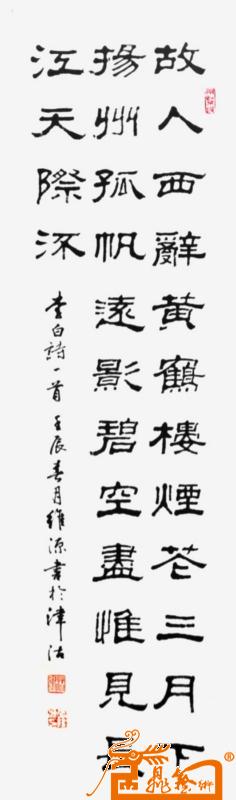 故人西辭黄鶴樓煙花三月下
揚州孤帆遠影碧空盡惟見長
江天際流
李白詩一首壬辰春月維源書於津沽